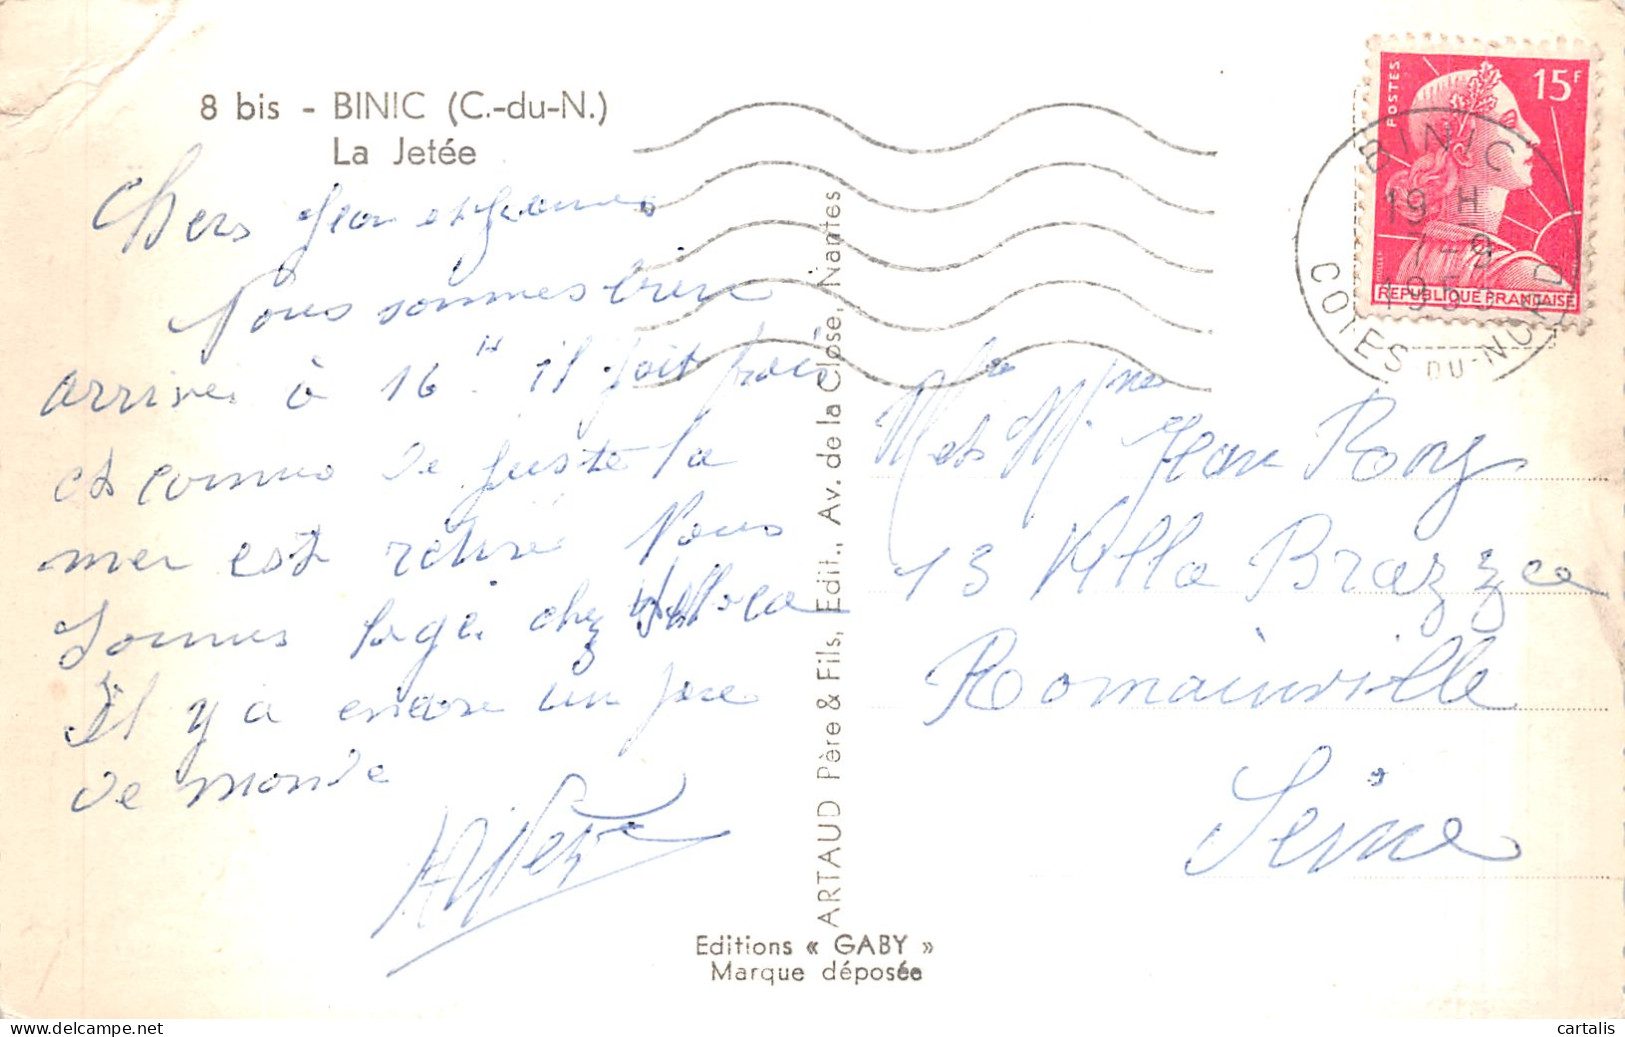 8 bis - BINIC (C.-du-N.)
La Jetée
Chers Jean et
Nous sommes bien
arrivés à 16 H il fait frais
et comme de juste la
mer est retiré Nous
sommes logé chez
Il y a encore un peu
de monde
ARTAUD Père & Fils, Edit., Av. de la Close, Nantes
Editions « GABY »
Marque déposée
POSTES
15F
REPUBLIQUE FRANCAISE
MULLER
BINIC
19 H
7-9
COTES-DU-NORD
M et Mme Jean Rory
13 Villa Brazza
Romainville
Seine
©www.delcampe.net
cartalis